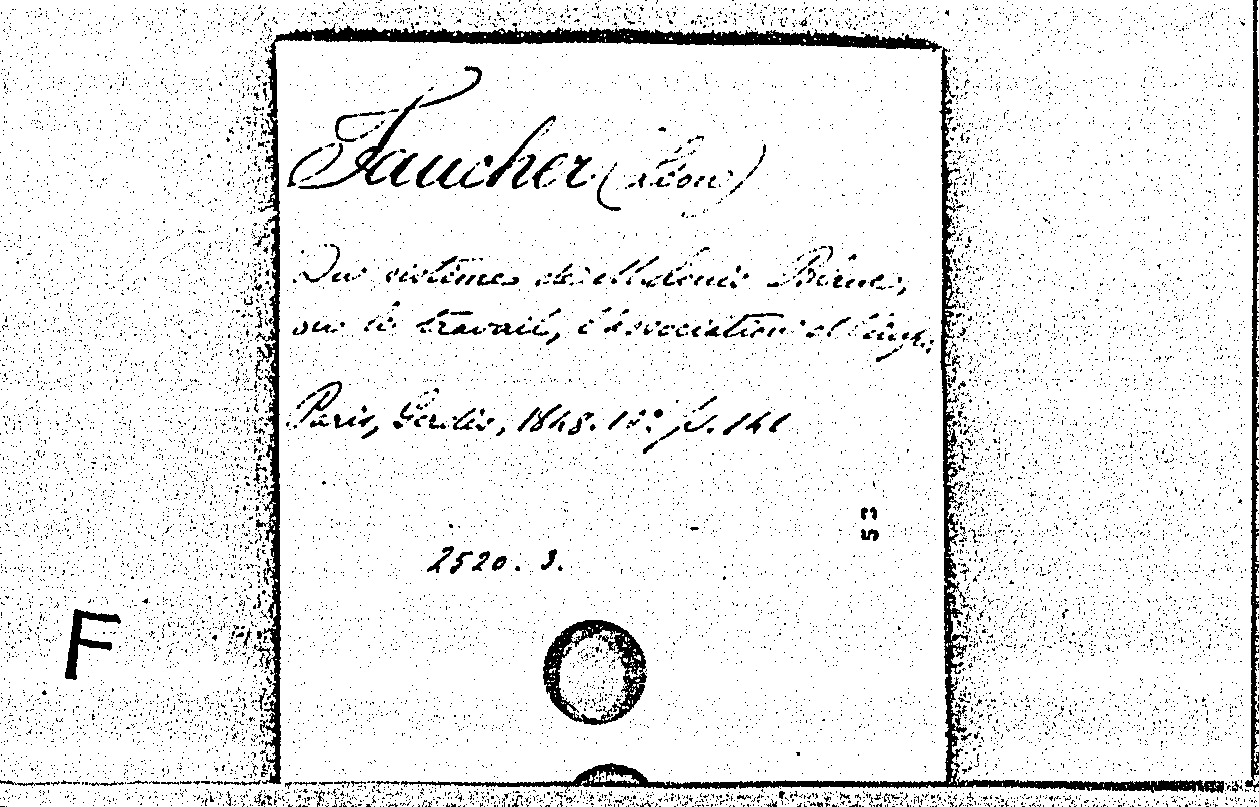 Faucher (Léon)
Du sistème de M. Louis Blanc,
ou le travail, l'association et l'impôt.
Paris, Gerdès, 1848. 12º p.
2520. 3.
F